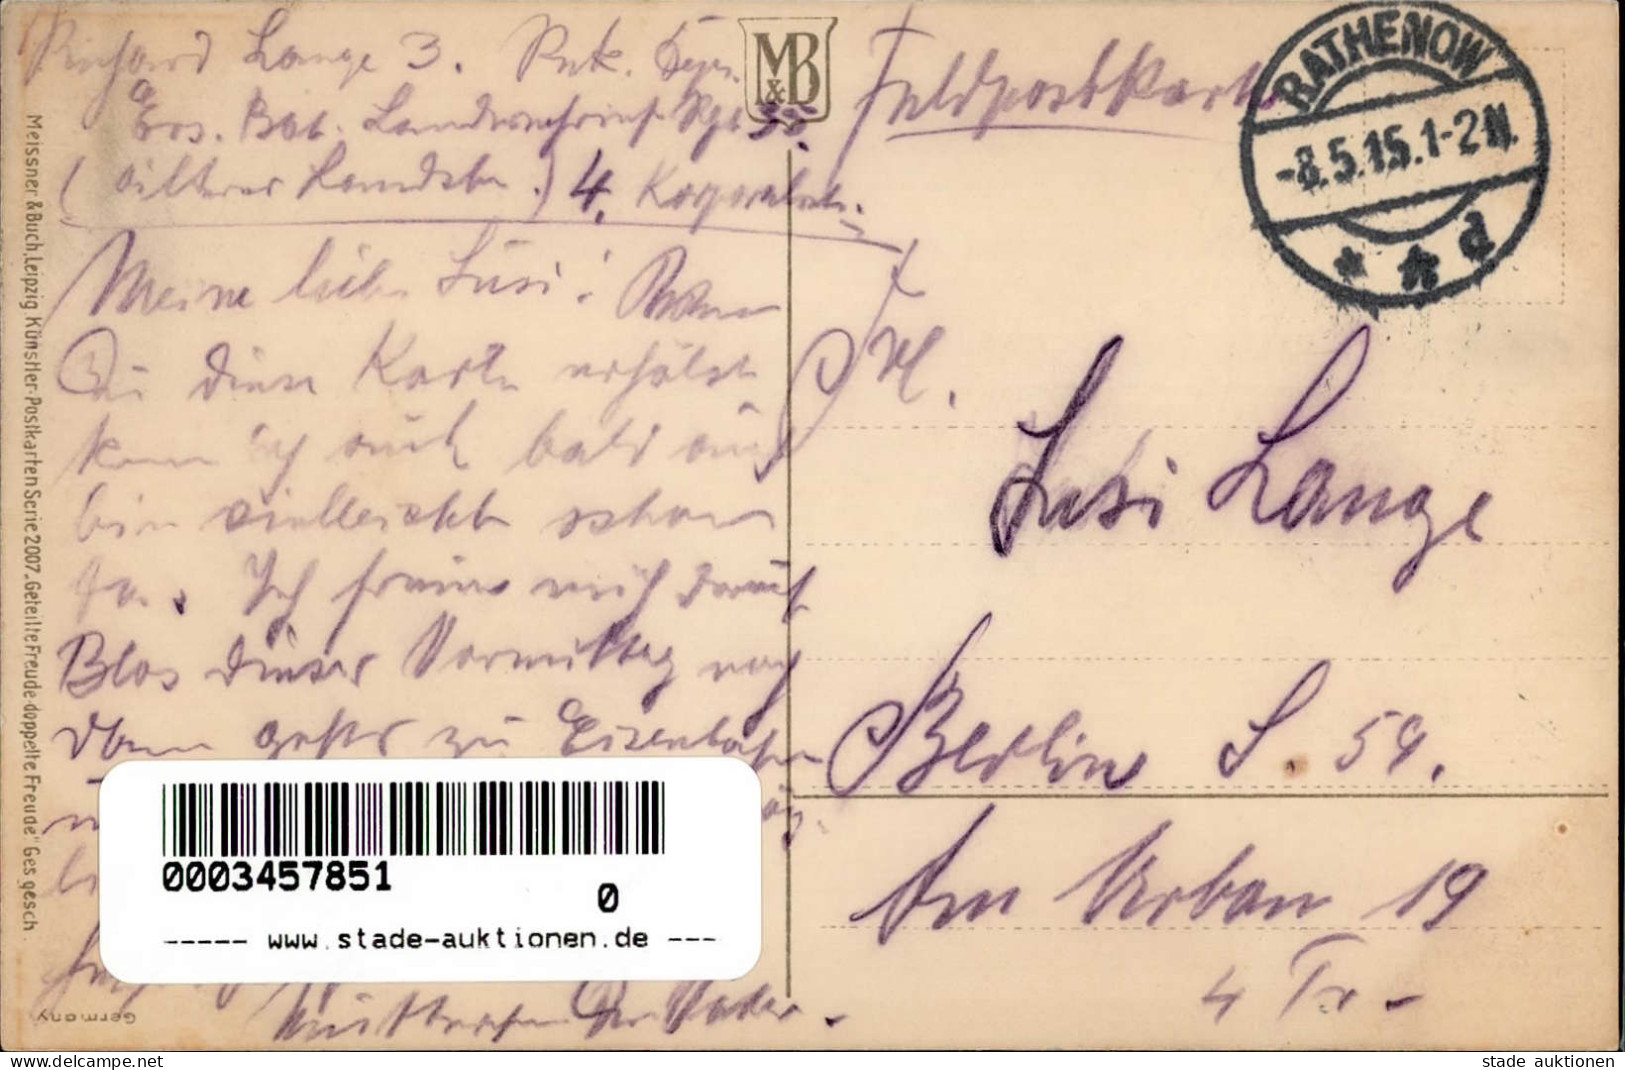 Richard Lange 3. Rek. Depo.
Ers. Bat. Landwehrinf. Rgt 35.
(älterer Landstr.) 4. Korporalsch.
Meine liebe Lusi! Wenn
Du diese Karte erhälst
kann ich auch bald und
bin vielleicht schon
da. Ich freue mich darauf
Blos dieser Vormittag noch
dann gehts zu Eisenbahn
Der Vater.
M&B
Feldpostkarte
RATHENOW
-8.5.15.1-2N.
* * d
Frl.
Lusi Lange
Berlin S. 59.
Am Urban 19
4 Tr.
Meissner & Buch, Leipzig Künstler-Postkarten Serie 2007. „Geteilte Freude-doppelte Freude" Ges. gesch.
Germany
0003457851
0
----- www.stade-auktionen.de ---
www.delcampe.net
stade auktionen